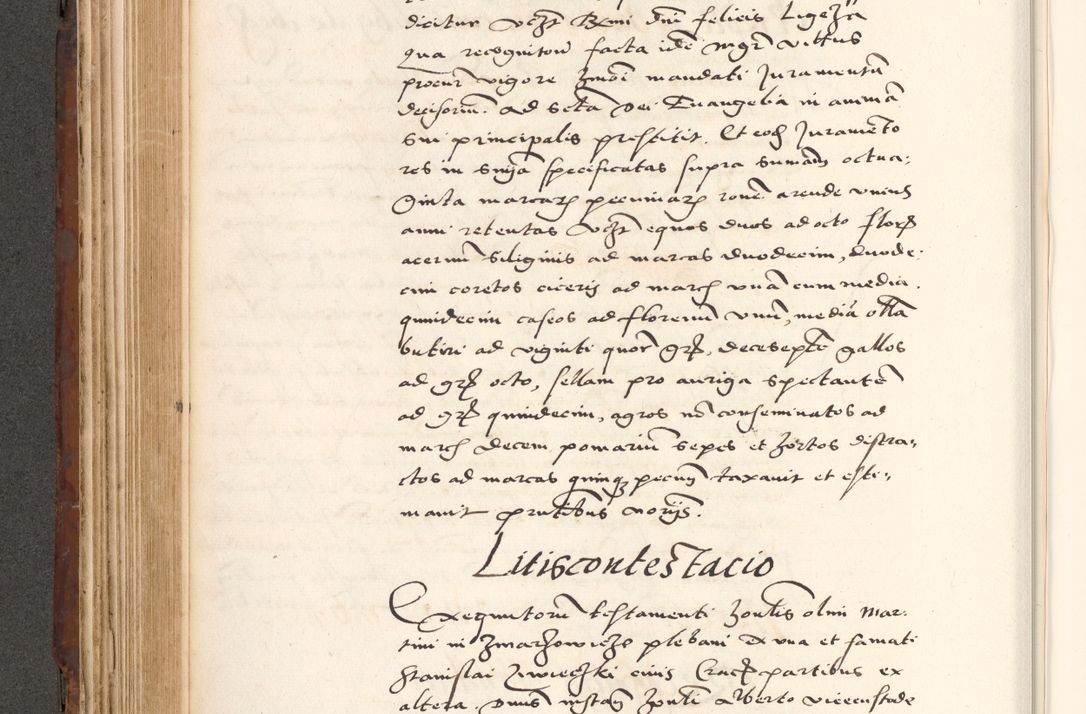 dicitur vczt Rmi dni felicis Ligęzā
qua recognitoñ facta idē Mgr̄ vittus
procur vigore hmōi mandati Juramentū
decisoriū. ad sctā Dei Euangelia in animā
sui principalis prestitit. Et eodē Juramēto
res in snīa specificatas supra sumām octua,
ginta marcarz pecuniarz ronē arende vnius
anni retentas vczt equos duos ad octo florz
aceruū siliginis ad marcas duodecim, duode,
cim coretos ciceris ad marcz vnā cum media.
quindecim caseos ad florenū vnū, mediā ollā
butiri ad viginti quor grz, deceseptē gallos
ad grz octo, sellam pro auriga spectantē
ad grz quindecim, agros nō conseminatos ad
marcz decem pomariū sepes et hortos distra,
ctos ad marcas quinqz pecun taxauit et esti,
mauit pntibus notys.
Litiscontestacio
Exequutorū testamenti honlis olim Mar,
tini in
plebani ex vna et famati
Stanislai
ciuis Cracz partibus ex
altera. Dnus instan honli Alberto vicecustode